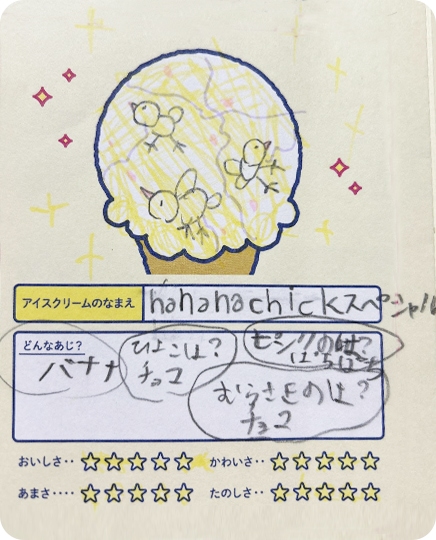 アイスクリームのなまえ
hananachickスペシャル
どんなあじ?
バナナ
ひよこは?
チョコ
ピンクのは?
むらさきのは?
チョコ
おいしさ‥
かわいさ‥
あまさ‥‥
たのしさ‥